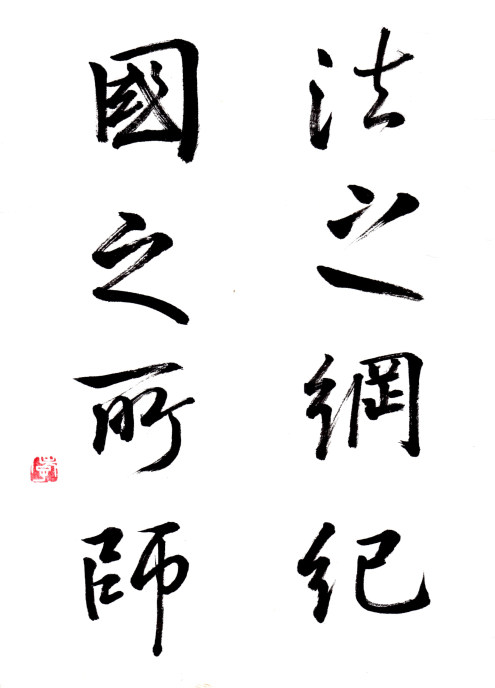 法之綱紀
國之所師